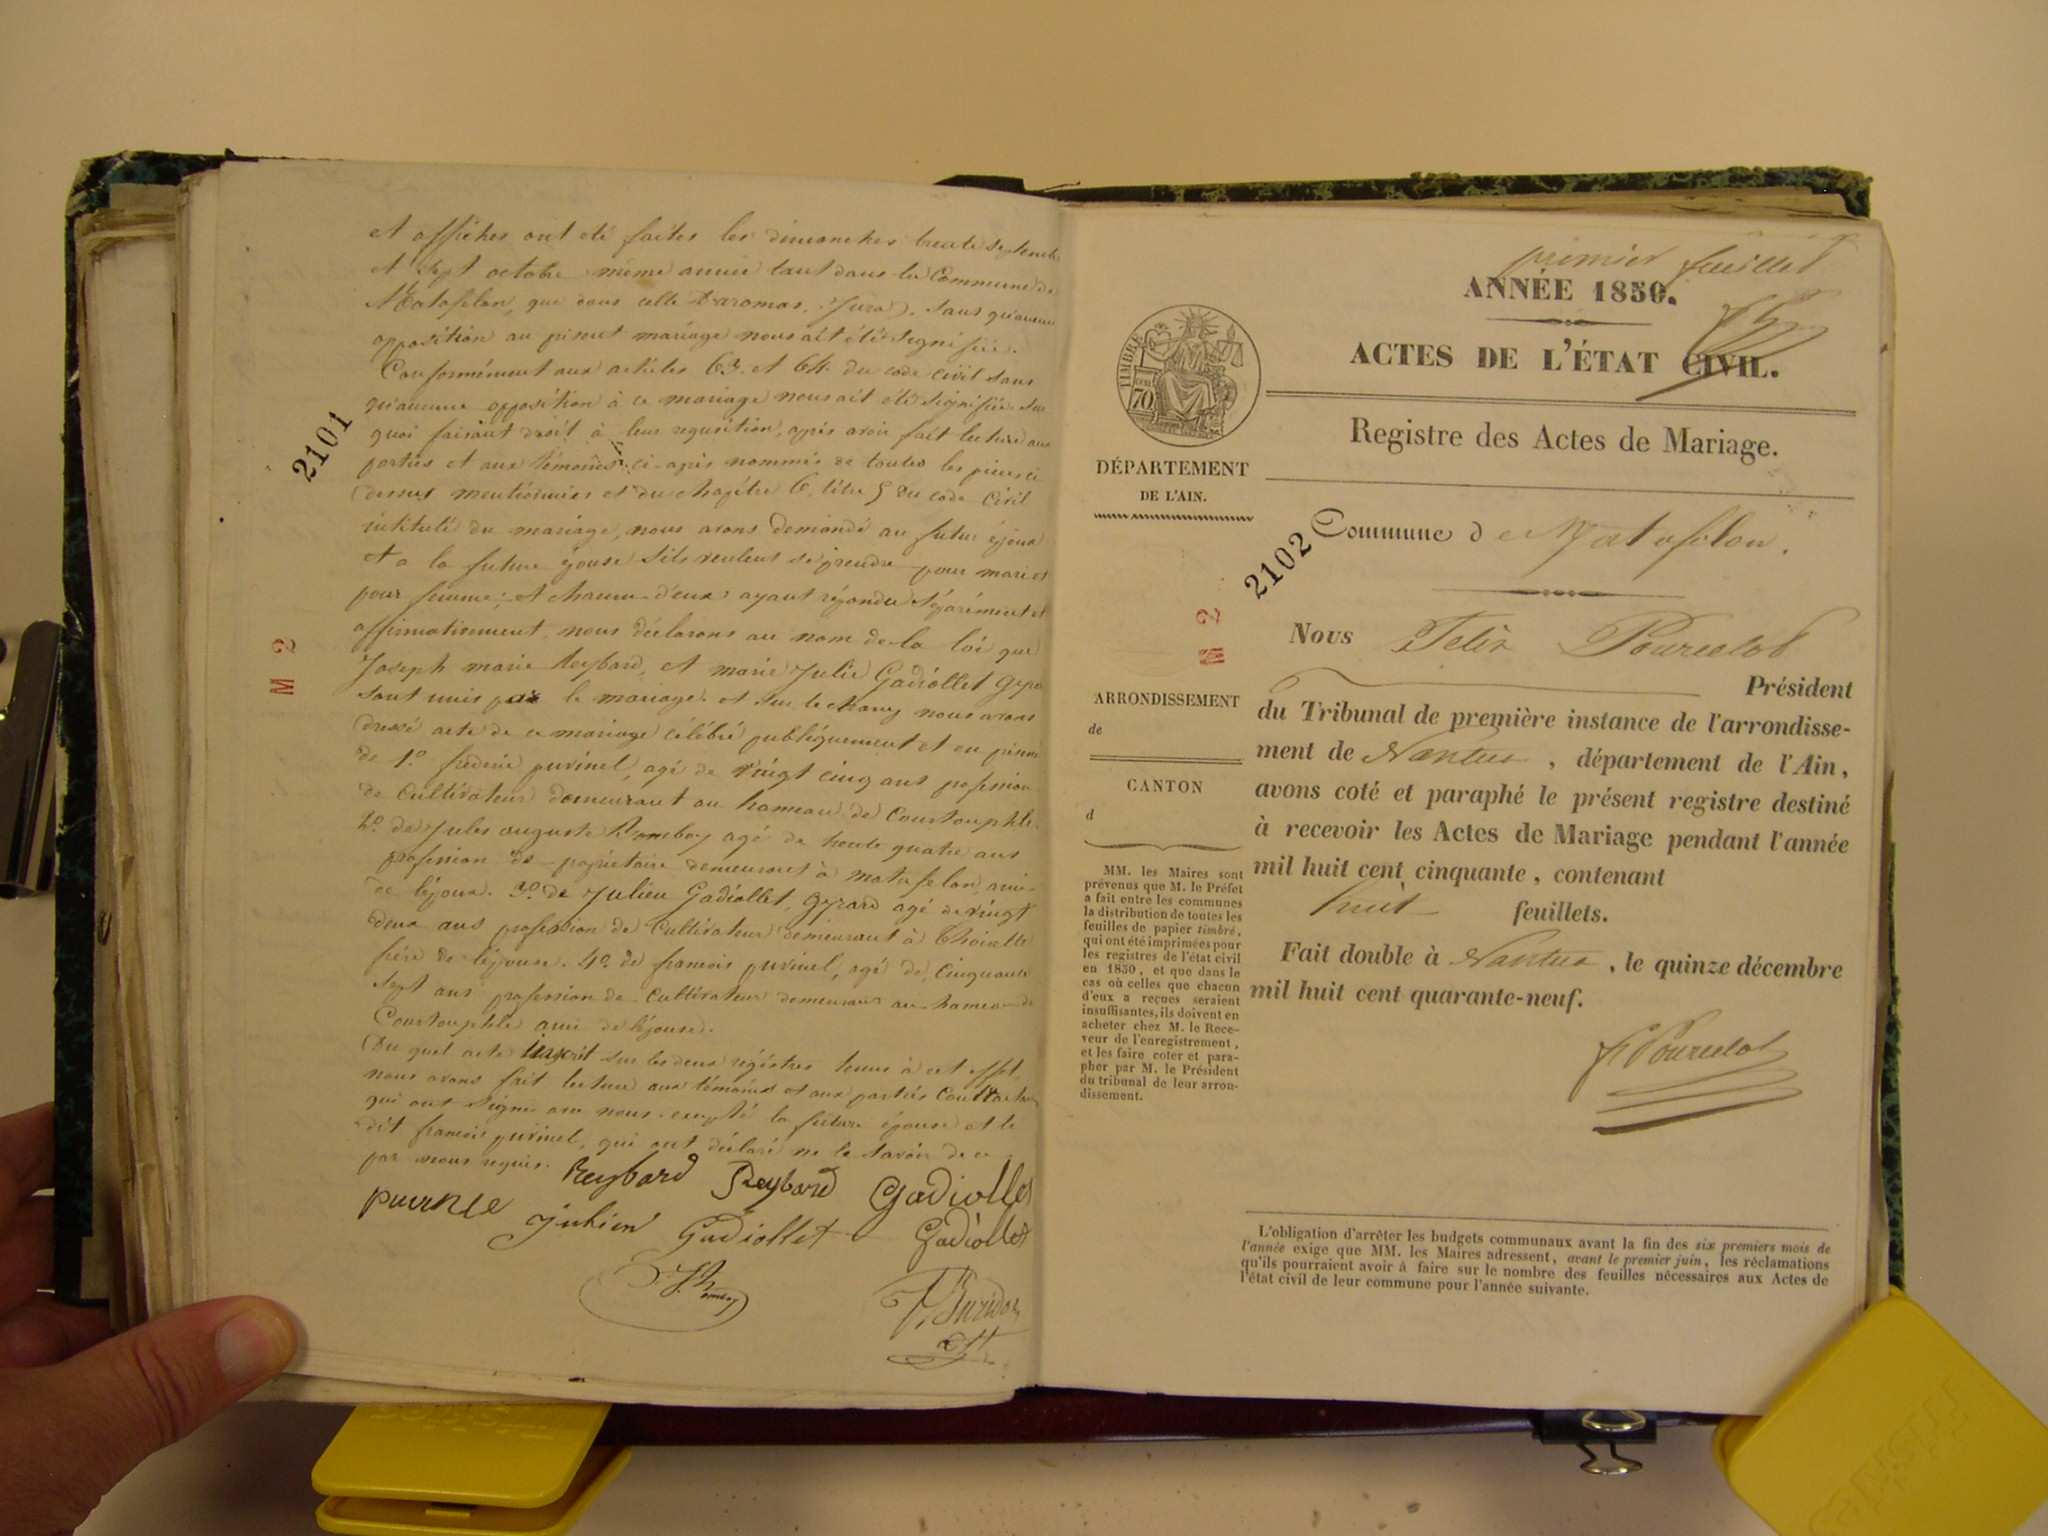 et affiches ont été faites les dimanches trente septembre
et sept octobre même année tant dans la Commune de
Matafelon, que dans celle Daromas, Jura). sans qu'aucune
opposition au présent mariage nous ait été signifiée.
Conformément aux articles 63. et 64. du code civil sans
qu'aucune opposition à ce mariage nous ait été signifiée. sur
quoi faisant droit à leur requsition, après avoir fait lecture aux
parties et aux témoins ci-après nommés de toutes les pieces ci
dessus mentionnées et du chapitre 6. titre 5 du code Civil
intitulé du mariage, nous avons demandé au futur époux
et a la future épouse s'ils veulent se prendre pour mari et
pour femme; et chacun d'eux ayant répondu séparément et
affirmativement, nous déclarons au nom de la loi que
Joseph marie Reybard, et marie Julie Gadiollet
sont unis par le mariage. et sur le champ nous avons
dressé acte de ce mariage célébré publiquement et en présence
de 1º. frederic purinel, agé de vingt cinq ans profession
de Cultivateur demeurant au hameau de Courtouphle.
2º. de Jules auguste Romboy agé de trente quatre ans
profession de propriétaire demeurant à matafelon, ami
de l'époux. 3º. de Julien Gadiollet, Gyrard agé de vingt
deux ans profession de Cultivateur demeurant à Thoirette
frère de l'épouse. 4º. de francois purinel, agé de Cinquante
sept ans profession de Cultivateur demeurant au hameau de
Courtouphle ami de l'épouse.
Du quel acte inscrit sur les deux régistres tenus à cet effet,
nous avons fait lecture aux témoins et aux partiés Contractantes
qui ont signé avec nous. excepté la future épouse et le
dit francois purinel, qui ont déclaré ne le savoir de ce
par nous requis.
Reybard Reybard Gadiollet
Julien Gadiollet Gadiollet
2101
M 2
premier feuillet
ANNÉE 1850.
ACTES DE L'ÉTAT CIVIL.
Registre des Actes de Mariage.
TIMBRE
70
DÉPARTEMENT
DE L'AIN.
2102
M 2
Commune de Matafelon.
Nous Felix Pourcelot
Président
du Tribunal de première instance de l'arrondisse-
ment de Nantua, département de l'Ain,
avons coté et paraphé le présent registre destiné
à recevoir les Actes de Mariage pendant l'année
mil huit cent cinquante, contenant
huit feuillets.
Fait double à Nantua, le quinze décembre
mil huit cent quarante-neuf.
F Pourcelot
ARRONDISSEMENT
de
CANTON
d
MM. les Maires sont
prévenus que M. le Préfet
a fait entre les communes
la distribution de toutes les
feuilles de papier timbré,
qui ont été imprimées pour
les registres de l'état civil
en 1850, et que dans le
cas où celles que chacun
d'eux a reçues seraient
insuffisantes, ils doivent en
acheter chez M. le Rece-
veur de l'enregistrement,
et les faire coter et para-
pher par M. le Président
du tribunal de leur arron-
dissement.
L'obligation d'arrêter les budgets communaux avant la fin des six premiers mois de
l'année exige que MM. les Maires adressent, avant le premier juin, les réclamations
qu'ils pourraient avoir à faire sur le nombre des feuilles nécessaires aux Actes de
l'état civil de leur commune pour l'année suivante.